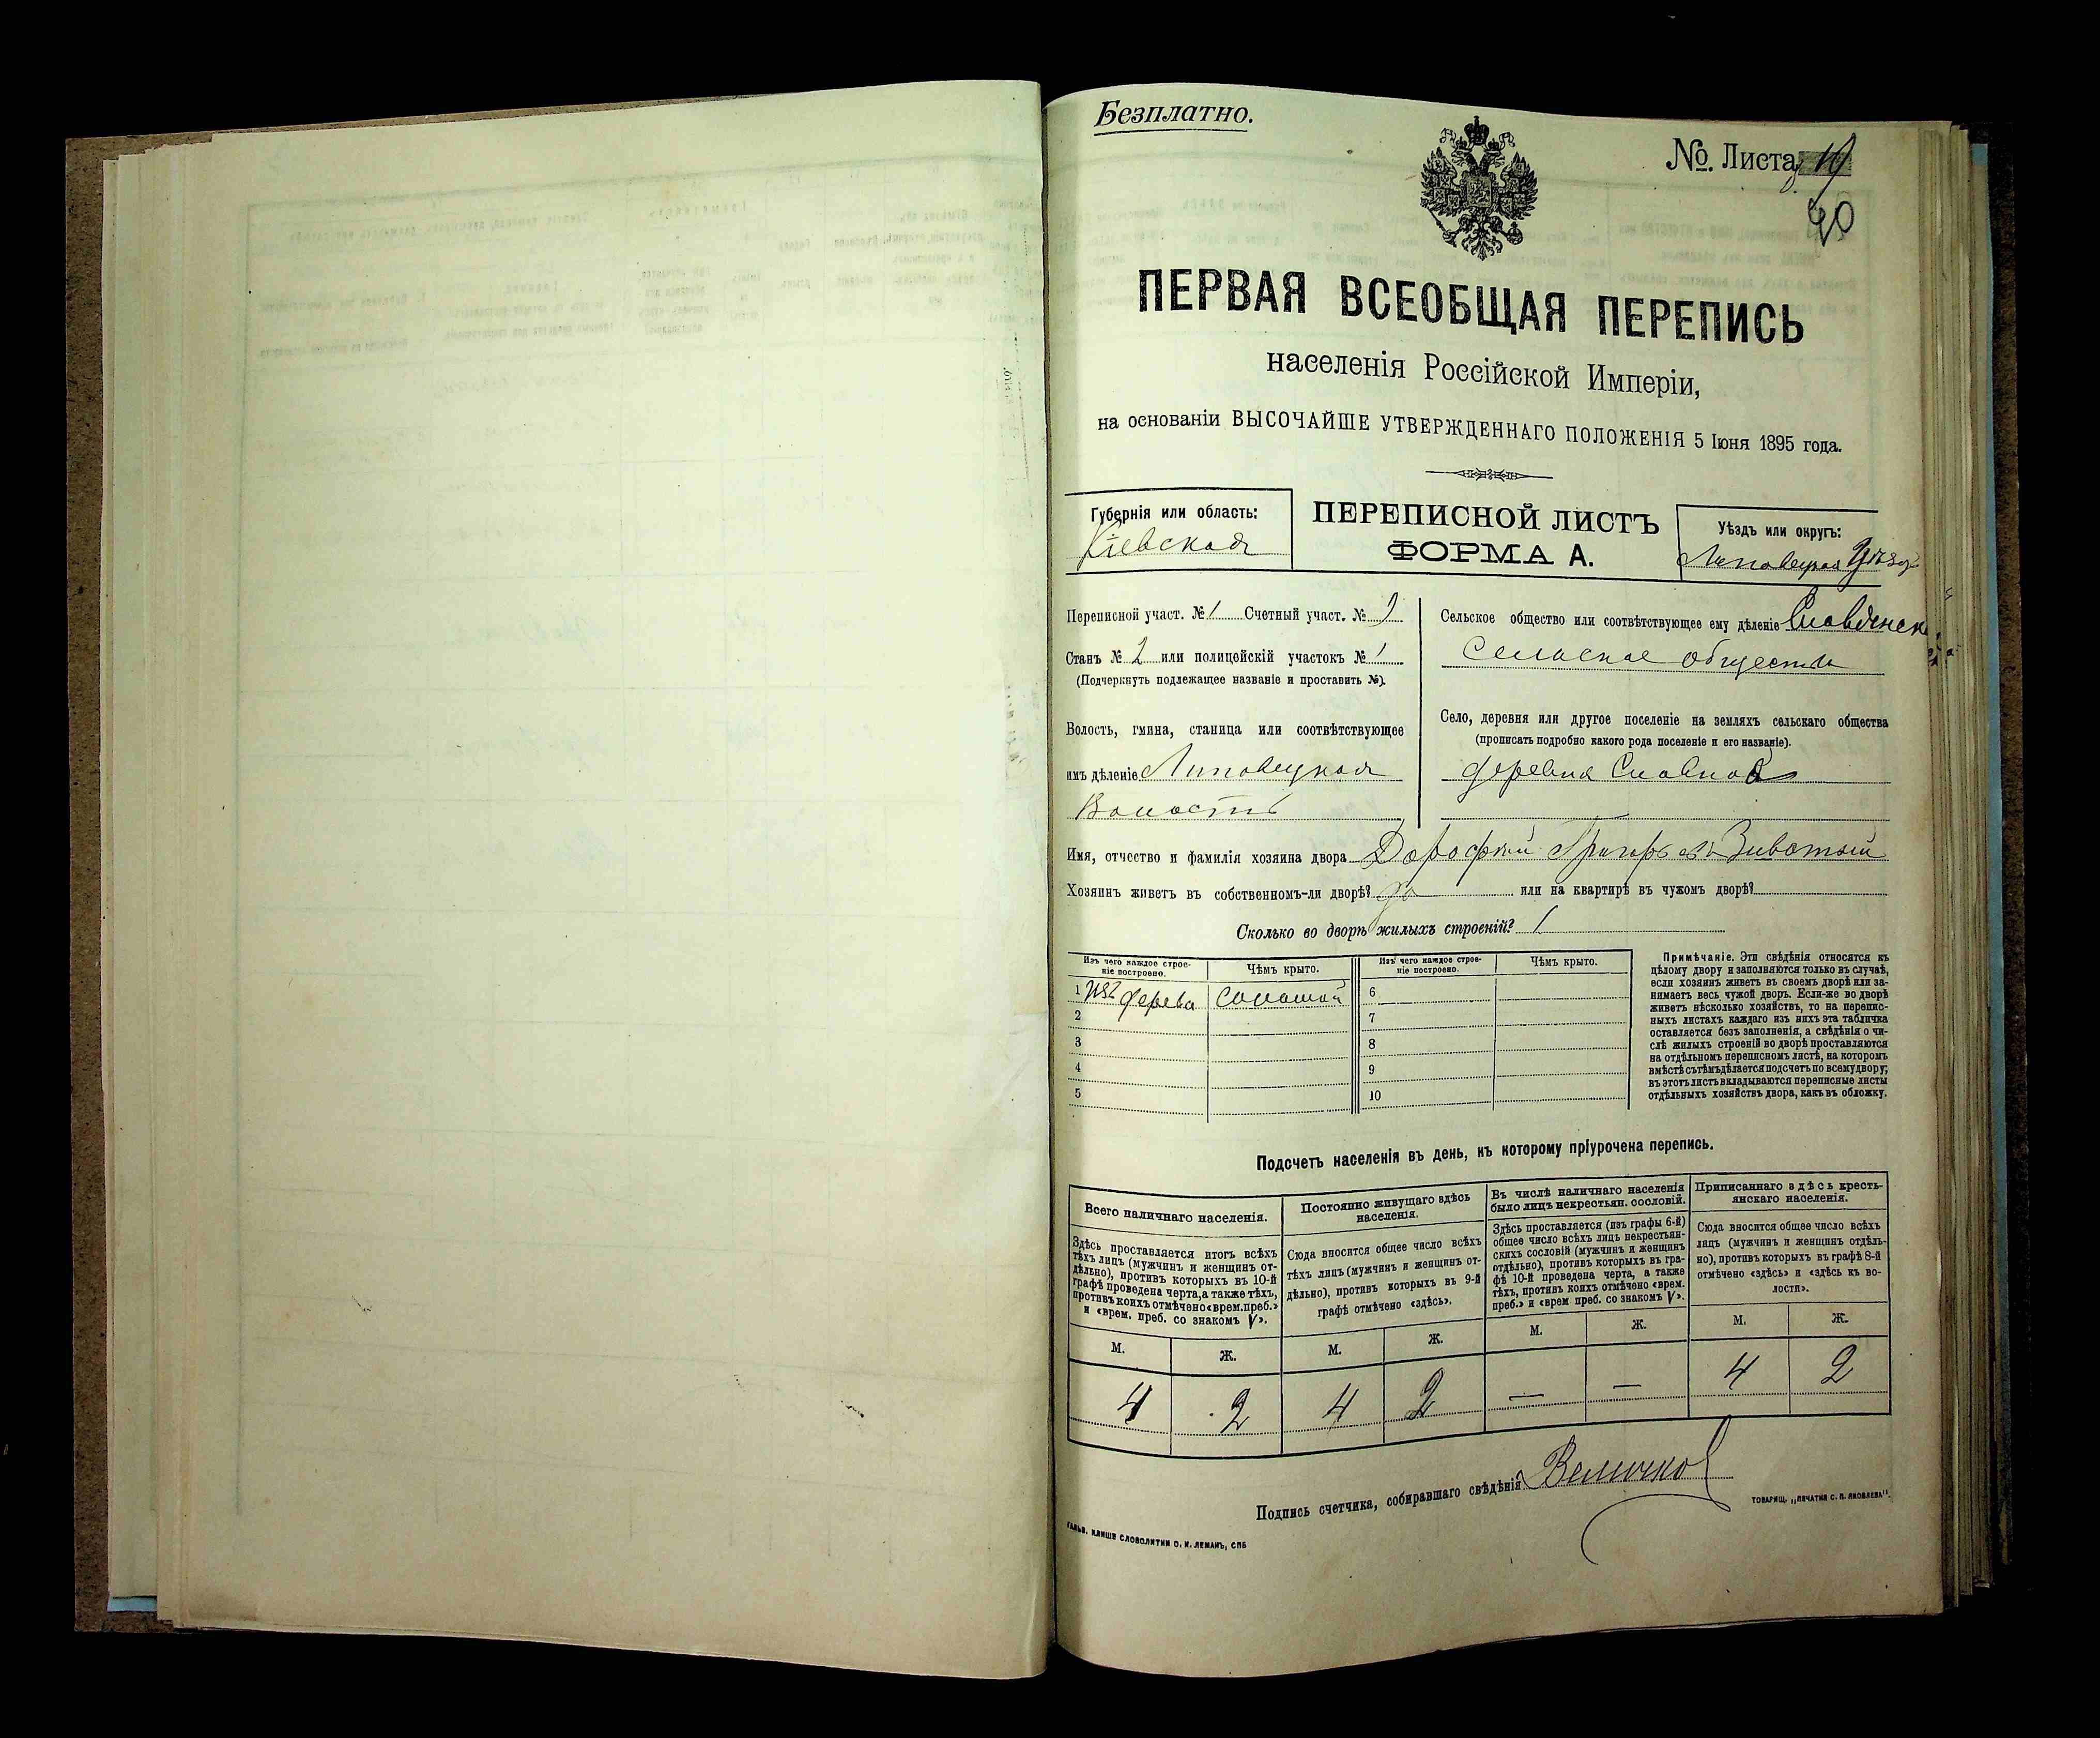 Безплатно.
№ Листа 19
20
ПЕРВАЯ ВСЕОБЩАЯ ПЕРЕПИСЬ
населенія Россійской Имперіи,
на основаніи ВЫСОЧАЙШЕ УТВЕРЖДЕННАГО ПОЛОЖЕНІЯ 5 Іюня 1895 года.
Губернія или область:
Кіевская
ПЕРЕПИСНОЙ ЛИСТЪ
ФОРМА А.
Уѣздъ или округъ:
Липовецкій Уѣздъ
Переписной участ. № 1 Счетный участ. № 2
Станъ № 2 или полицейскій участокъ № 1
(Подчеркнуть подлежащее названіе и проставить №).
Волость, гмина, станица или соотвѣтствующее
имъ дѣленіе Липовецкая
Волость
Сельское общество или соотвѣтствующее ему дѣленіе
Сельское общество
Село, деревня или другое поселеніе на земляхъ сельскаго общества
(прописать подробно какого рода поселеніе и его названіе).
деревня
Имя, отчество и фамилія хозяина двора Дорофѣй
Хозяинъ живетъ въ собственномъ-ли дворѣ? да или на квартирѣ въ чужомъ дворѣ?
Сколько во дворѣ жилыхъ строеній? 1
Изъ чего каждое строе-
ніе построено.
Чѣмъ крыто.
Изъ чего каждое строе-
ніе построено.
Чѣмъ крыто.
1 Изъ дерева соломой 6
2 7
3 8
4 9
5 10
Примѣчаніе. Эти свѣдѣнія относятся къ
цѣлому двору и заполняются только въ случаѣ,
если хозяинъ живетъ въ своемъ дворѣ или за-
нимаетъ весь чужой дворъ. Если-же во дворѣ
живетъ нѣсколько хозяйствъ, то на перепис-
ныхъ листахъ каждаго изъ нихъ эта табличка
оставляется безъ заполненія, а свѣдѣнія о чи-
слѣ жилыхъ строеній во дворѣ проставляются
на отдѣльномъ переписномъ листѣ, на которомъ
вмѣстѣ съ тѣмъ дѣлается подсчетъ по всему двору;
въ этотъ листъ вкладываются переписные листы
отдѣльныхъ хозяйствъ двора, какъ въ обложку.
Подсчетъ населенія въ день, къ которому пріурочена перепись.
Всего наличнаго населенія.
Здѣсь проставляется итогъ всѣхъ
тѣхъ лицъ (мужчинъ и женщинъ от-
дѣльно), противъ которыхъ въ 10-й
графѣ проведена черта, а также тѣхъ,
противъ коихъ отмѣчено «врем. преб.»
и «врем. преб. со знакомъ V».
Постоянно живущаго здѣсь
населенія.
Сюда вносится общее число всѣхъ
тѣхъ лицъ (мужчинъ и женщинъ от-
дѣльно), противъ которыхъ въ 9-й
графѣ отмѣчено «здѣсь».
Въ числѣ наличнаго населенія
было лицъ некрестьян. сословій.
Здѣсь проставляется (изъ графы 6-й)
общее число всѣхъ лицъ некрестьян-
скихъ сословій (мужчинъ и женщинъ
отдѣльно), противъ которыхъ въ гра-
фѣ 10-й проведена черта, а также
тѣхъ, противъ коихъ отмѣчено «врем.
преб.» и «врем преб. со знакомъ V».
Приписаннаго здѣсь кресть-
янскаго населенія.
Сюда вносится общее число всѣхъ
лицъ (мужчинъ и женщинъ отдѣль-
но), противъ которыхъ въ графѣ 8-й
отмѣчено «здѣсь» и «здѣсь къ во-
лости».
М. Ж. М. Ж. М. Ж. М. Ж.
4 2 4 2 — — 4 2
Подпись счетчика, собиравшаго свѣдѣнія Величко
ГАЛЬВ. КЛИШЕ СЛОВОЛИТНИ О. И. ЛЕМАНЪ, СПБ
ТОВАРИЩ. „ПЕЧАТНЯ С. П. ЯКОВЛЕВА".